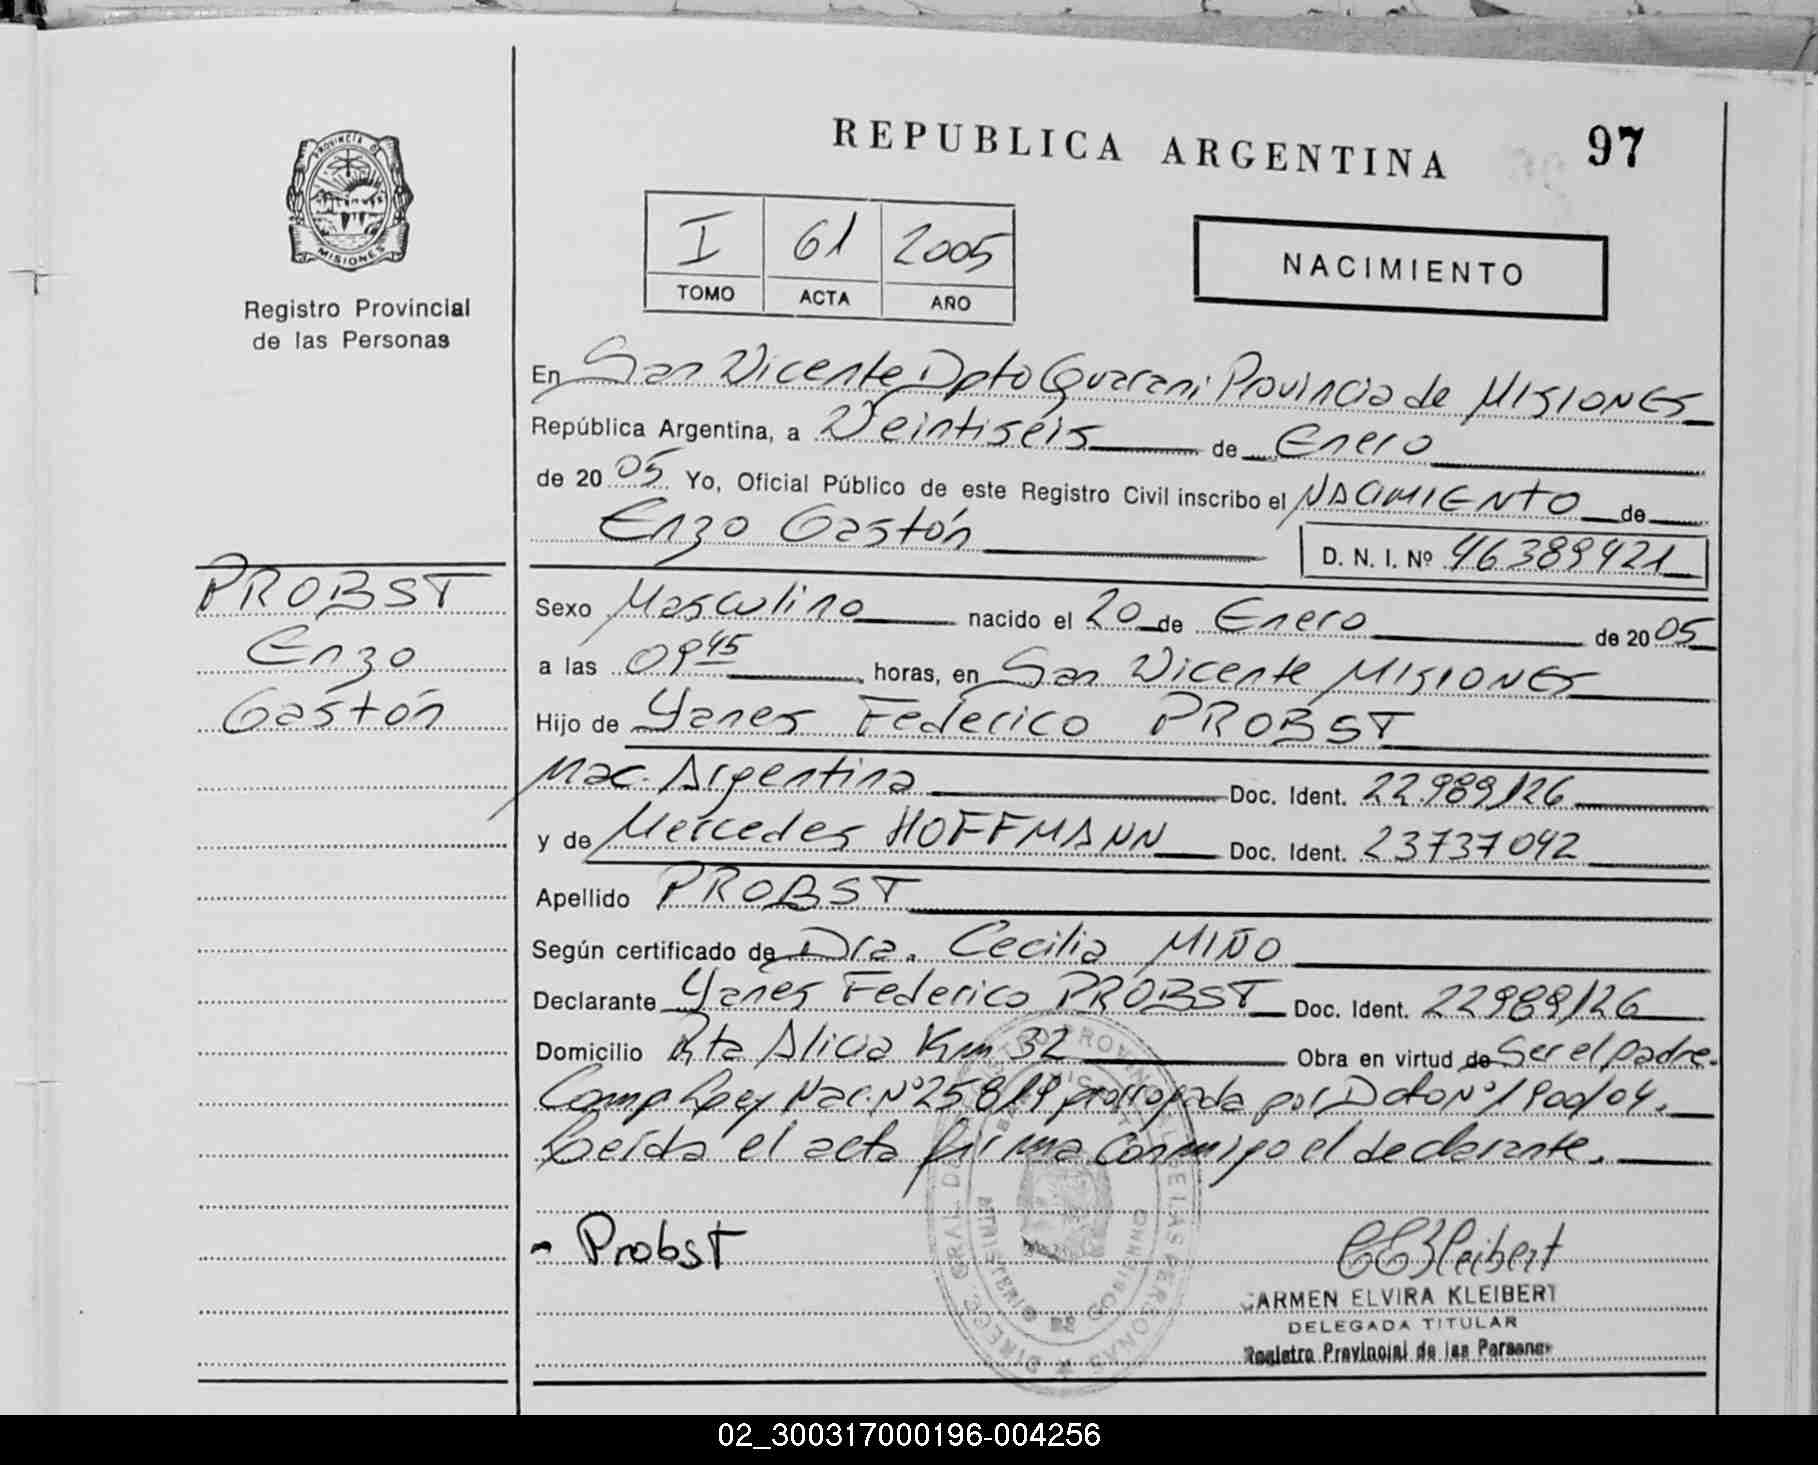 REPUBLICA ARGENTINA
97
PROVINCIA D
MISIONES
Registro Provincial
de las Personas
I 61 2005
TOMO ACTA AÑO
NACIMIENTO
En San Vicente Dpto Guarani Provincia de MISIONES
República Argentina, a Veintiseis de Enero
de 2005 Yo, Oficial Público de este Registro Civil inscribo el NACIMIENTO de
Enzo Gastón
D. N. I. Nº 46389421
PROBST
Enzo
Gastón
Sexo Masculino nacido el 20 de Enero de 2005
a las 09 45 horas, en San Vicente MISIONES
Hijo de Yanes Federico PROBST
Nac. Argentina Doc. Ident. 22989126
y de Mercedes HOFFMANN Doc. Ident. 23737042
Apellido PROBST
Según certificado de Dra. Cecilia MIÑO
Declarante Yanes Federico PROBST Doc. Ident. 22989126
Domicilio Rta Alicia Km 32 Obra en virtud de Ser el padre.
Comp Ley Nac. Nº 25819 prorrogada por Dcto Nº 1900/04.
Leída el acta firma conmigo el declarante.
Probst
CEKleibert
CARMEN ELVIRA KLEIBERT
DELEGADA TITULAR
Registro Provincial de las Personas
02_300317000196-004256